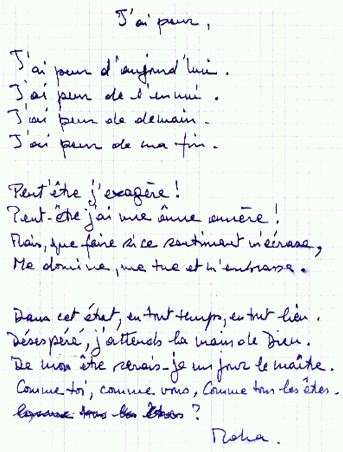 J'ai peur,
J'ai peur d'aujourd'hui.
J'ai peur de l'ennui.
J'ai peur de demain.
J'ai peur de ma fin.
Peut'être j'exagère !
Peut-être j'ai une âme amère !
Mais, que faire si ce sentiment m'écrase,
Me domine, me tue et m'embrasse.
Dans cet état, en tout temps, en tout lieu.
Désespéré, j'attends la main de Dieu.
De mon être serais-je un jour le maître.
Comme toi, comme vous, Comme tous les êtres.
comme tous les êtres ?
Moha.